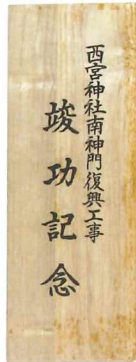 西宮神社南神門復興工事
竣功記念